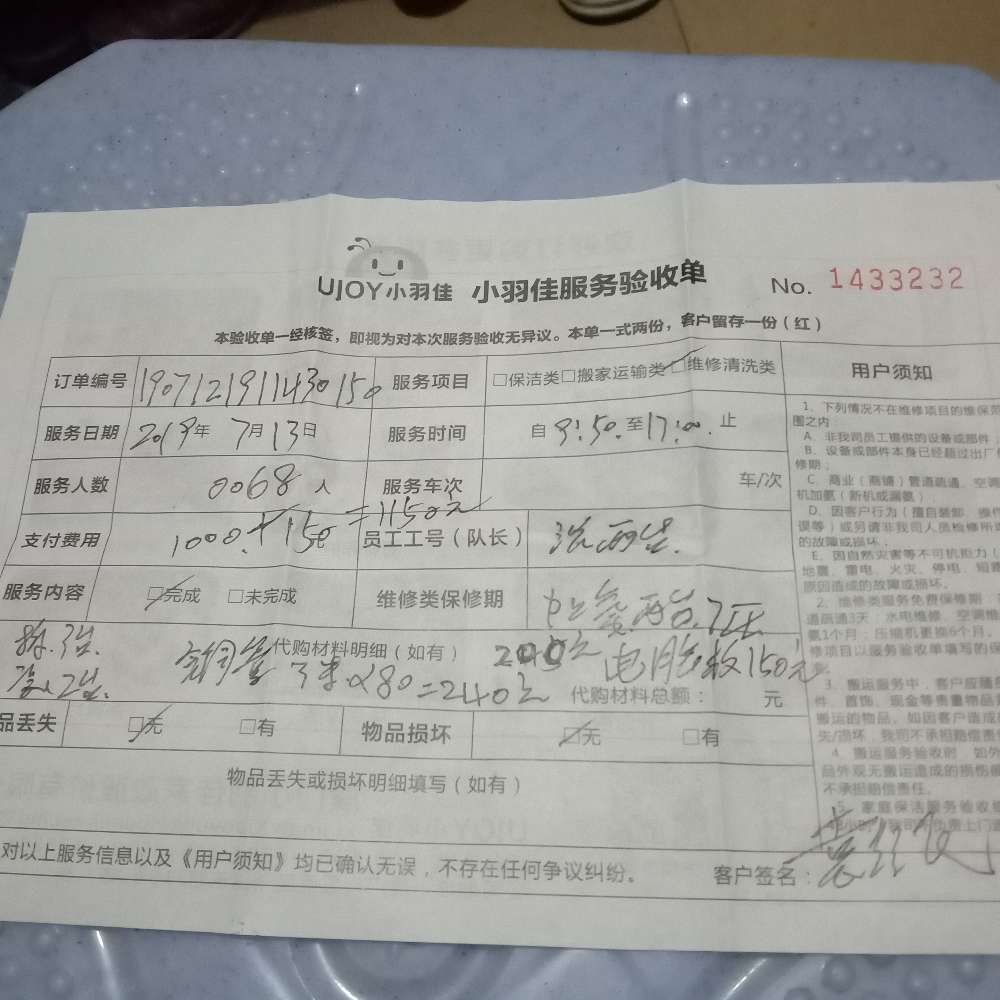 UJOY小羽佳 小羽佳服务验收单 No. 1433232
本验收单一经核签，即视为对本次服务验收无异议。本单一式两份，客户留存一份（红）
订单编号 1907121911430150 服务项目 □保洁类□搬家运输类□维修清洗类 用户须知
服务日期 2019年 7月13日 服务时间 自 9:50.至17:00.止
服务人数 0068人 服务车次 车/次
支付费用 1000.+150=1150元 员工工号（队长）
服务内容 □完成 □未完成 维修类保修期
代购材料明细（如有） 200元 电脑板150元
铜管 3米×80=240元 代购材料总额： 元
品丢失 □无 □有 物品损坏 □无 □有
物品丢失或损坏明细填写（如有）
对以上服务信息以及《用户须知》均已确认无误，不存在任何争议纠纷。 客户签名：
1、下列情况不在维修项目的维保范
围之内：
A、非我司员工提供的设备或部件
B、设备或部件本身已经超过出厂
修期；
C、商业（商铺）管道疏通、空调
机加氨（新机或漏氨
D、因客户行为（擅自装卸、操作
误等）或另请非我司人员检修所
的故障或损坏
E、因自然灾害等不可机拒力（
地震、雷电、火灾、停电、短
原因造成的故障或损坏。
2、维修类服务免费保修期：
道疏通3天；水电维修、空调维
氨1个月；压缩机更换6个月。
修项目以服务验收单填写的保
3、搬运服务中，客户应随
件、首饰、现金等贵重物品
搬运的物品。如因客户造成
失/损坏，我司不承担赔偿责
4、搬运服务验收时，如外
品外观无搬运造成的损伤
不承担赔偿责任。
5、家庭保洁服务验收